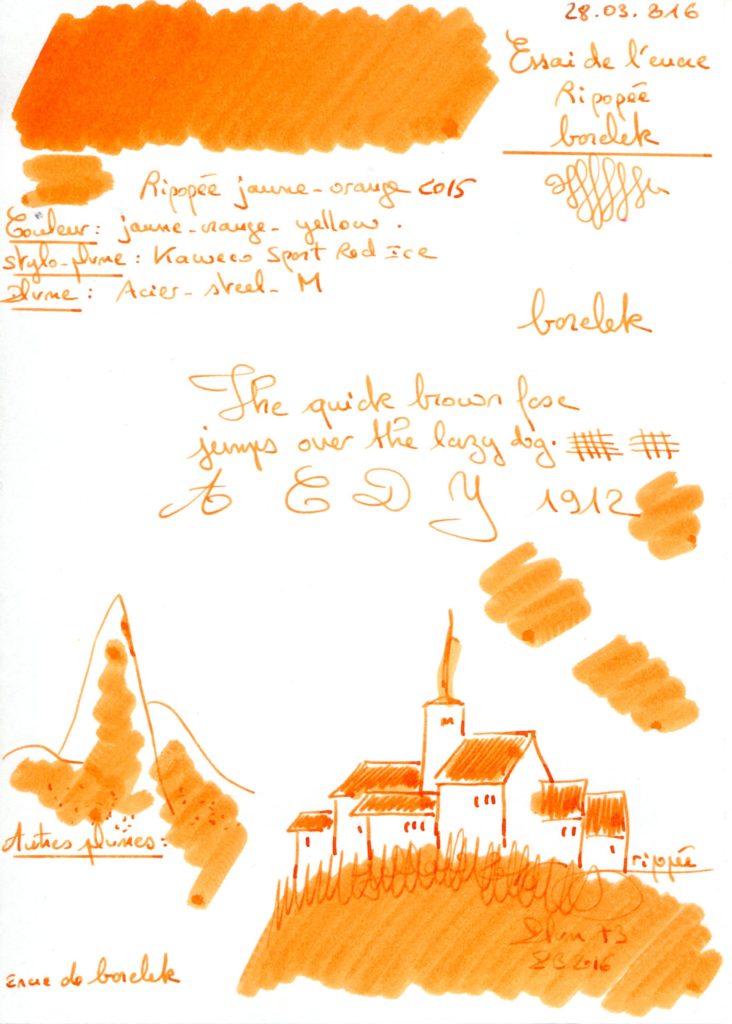 28.03.2016
Essai de l'encre
Ripopée
borelek
Ripopée jaune-orange 2015
Couleur : jaune-orange-yellow.
Stylo-plume : Kaweco Sport Red Ice
Plume : Acier-steel-M
borelek
The quick brown foxe
jumps over the lazy dog.
A E D Y 1912
Autres plumes :
ripopée
2016
Encre de borelek